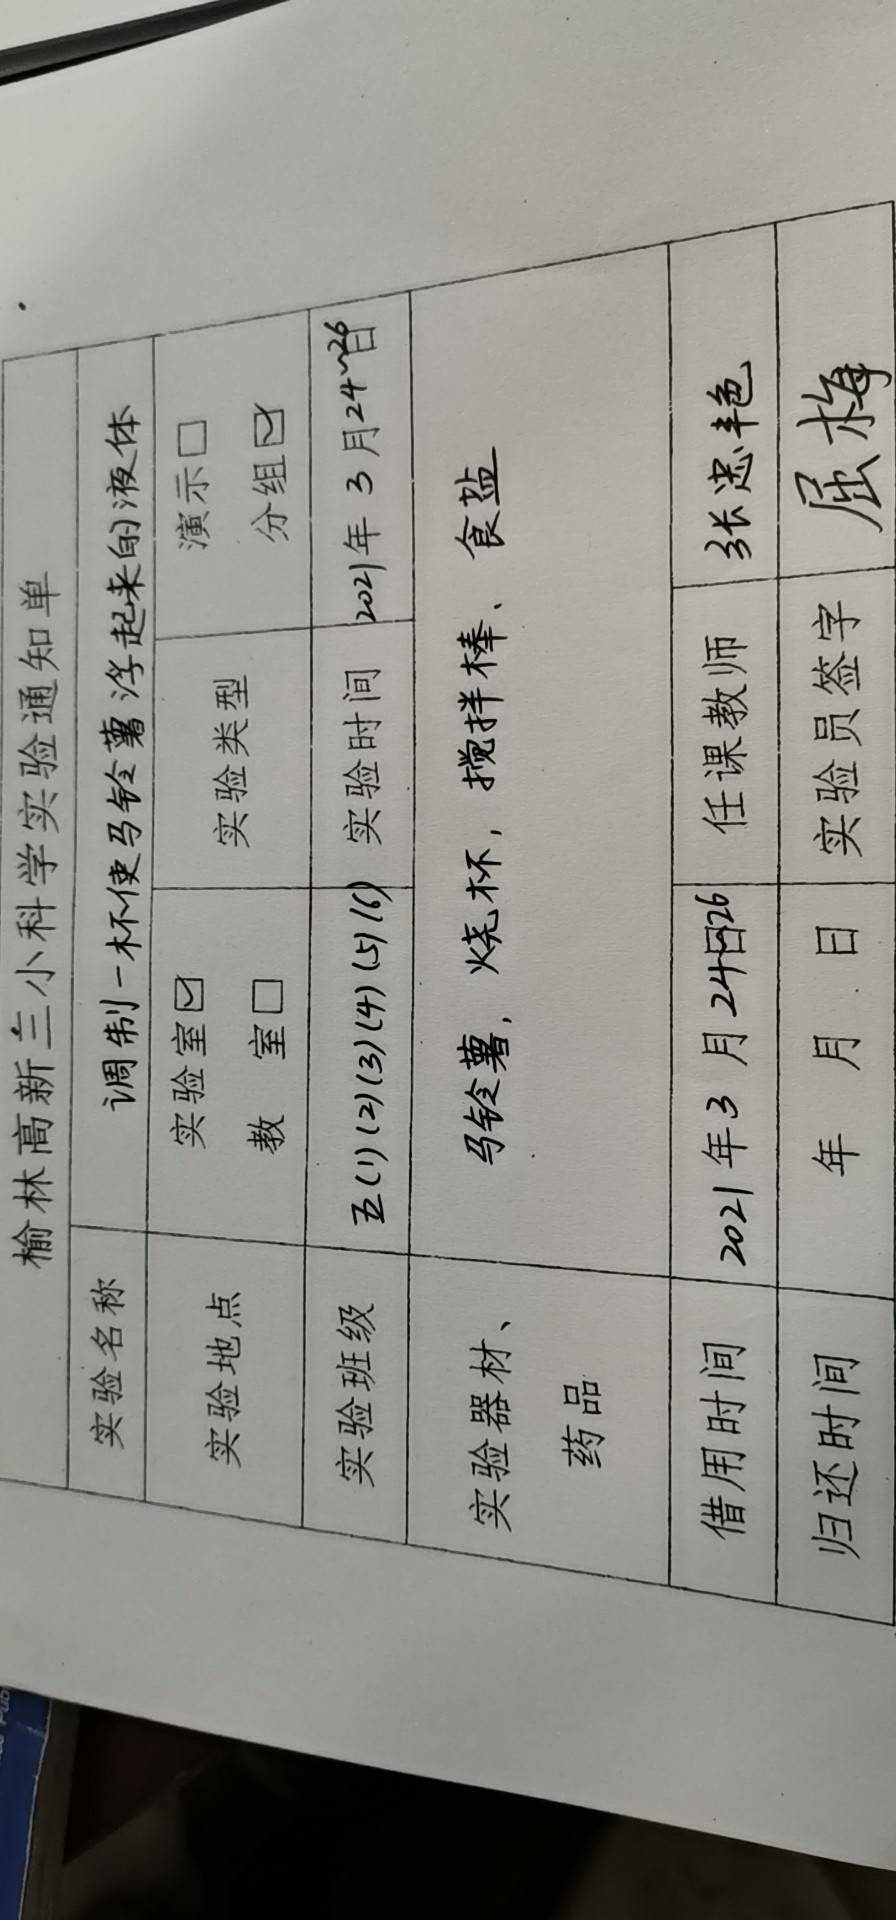 榆林高新三小科学实验通知单
实验名称 调制一杯使马铃薯浮起来的液体
实验地点 实验室☑ 实验类型 演示□
教 室□ 分组☑
实验班级 五(1)(2)(3)(4)(5)(6) 实验时间 2021年3月24~26日
实验器材、 马铃薯,烧杯,搅拌棒、食盐
药品
借用时间 2021年3月24日26 任课教师 张忠艳
归还时间 年 月 日 实验员签字 屈梅